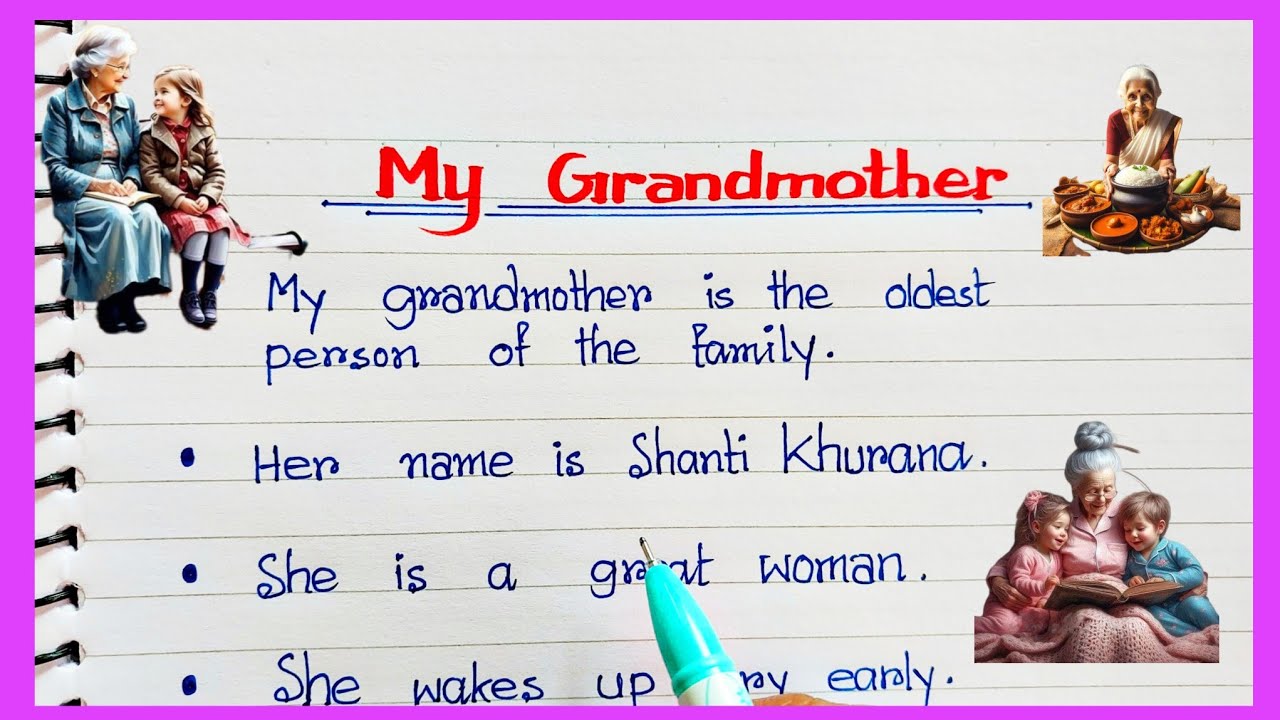 My Grandmother
My grandmother is the oldest
person of the family.
• Her name is Shanti Khurana.
• She is a great woman.
• She wakes up early.